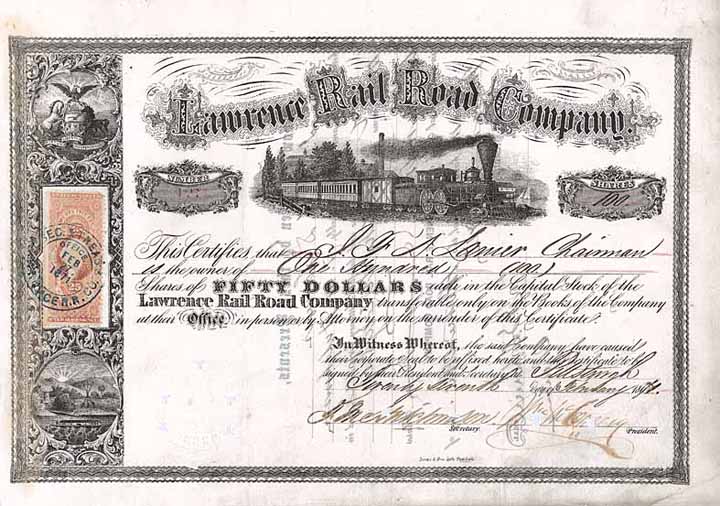 Lawrence Rail Road Company.
NUMBER
SHARES
100
This Certifies, that J. F. D. Lanier Chairman
is the owner of One Hundred (100)
Shares of FIFTY DOLLARS each in the Capital Stock of the
Lawrence Rail Road Company transferable only on the Books of the Company
at their Office in person or by Attorney on the surrender of this Certificate.
In Witness Whereof, the said Company have caused
their corporate Seal to be affixed hereto and this Certificate to be
signed by their President and Secretary at Pittsburgh
Twenty Seventh day of February 1871.
Secretary.
President.
SEC. & TREAS.
OFFICE
FEB
25